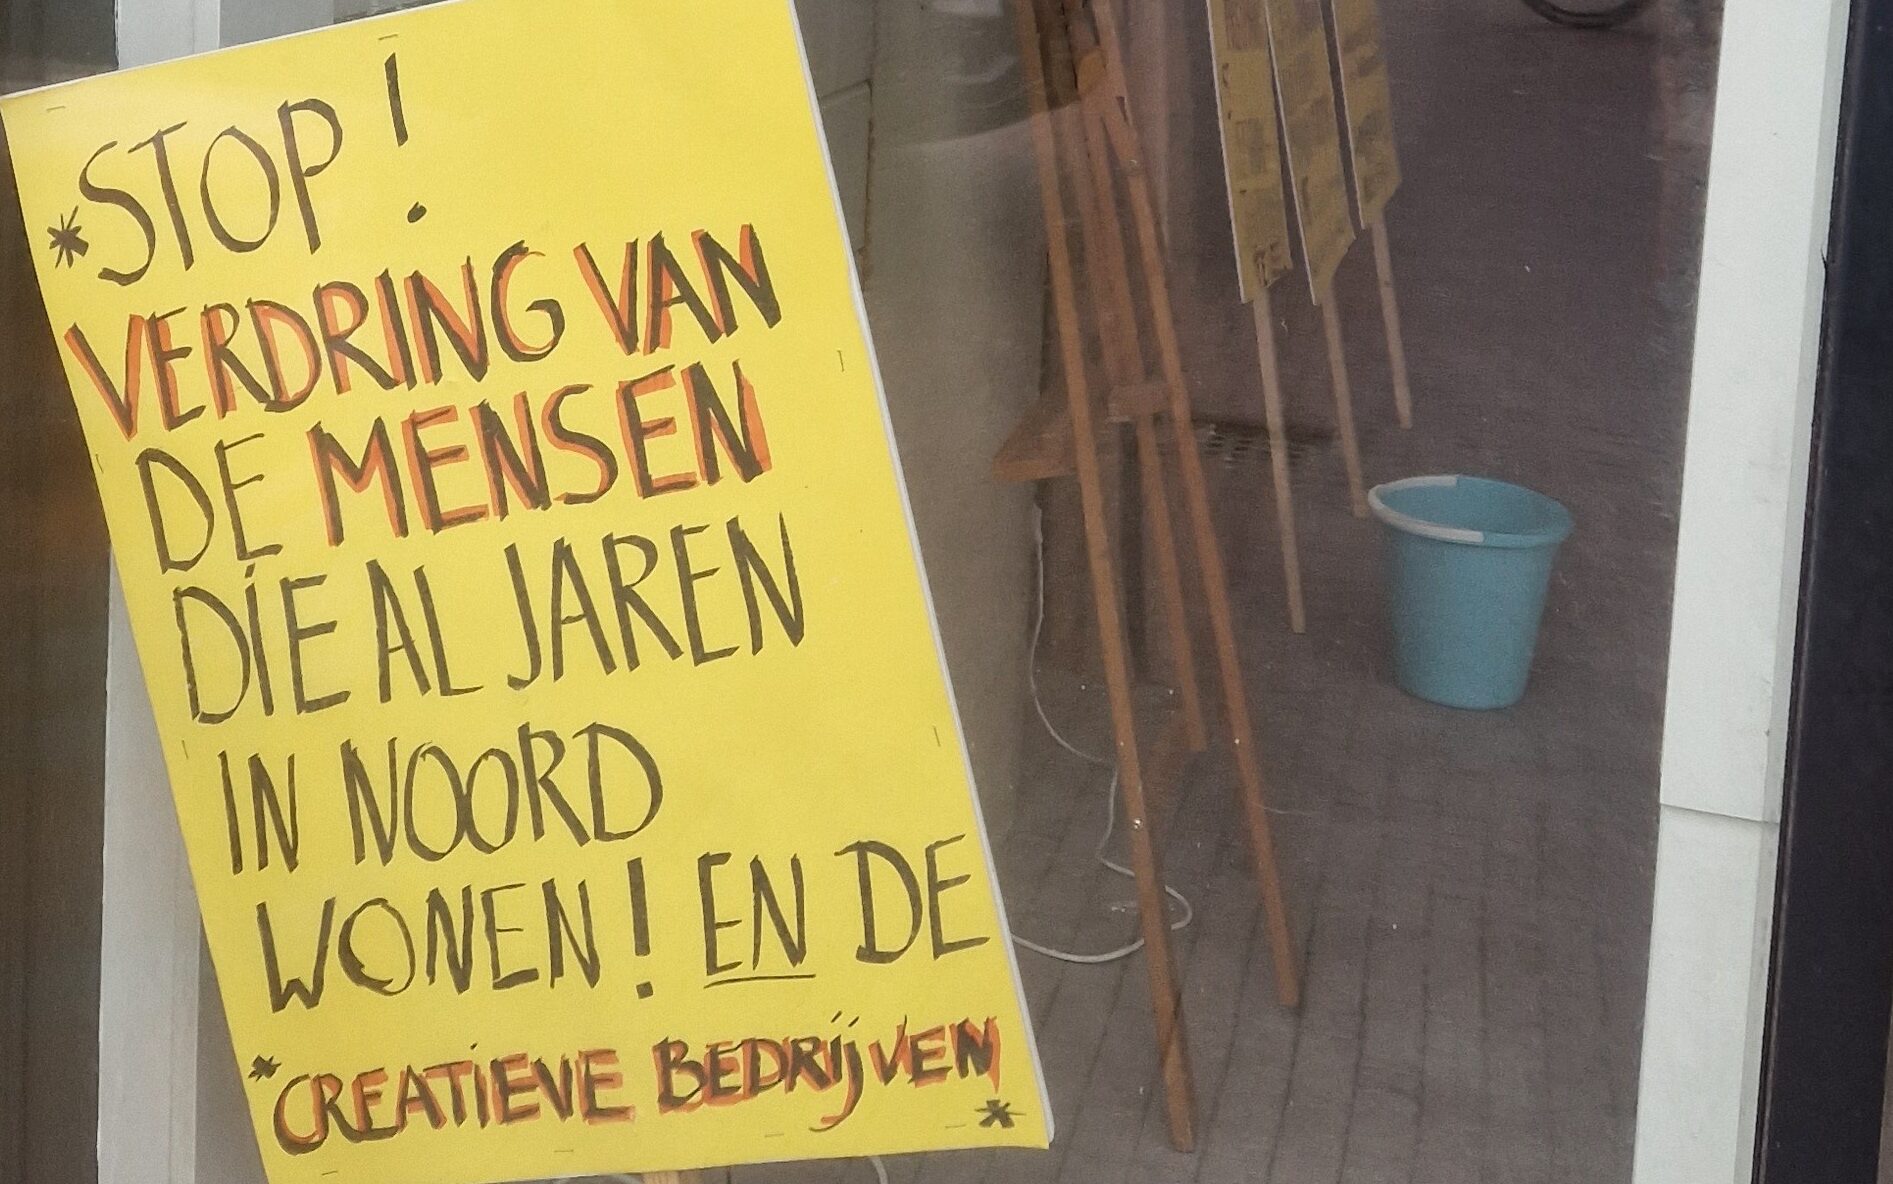 *STOP!
VERDRING VAN
DE MENSEN
DIE AL JAREN
IN NOORD
WONEN! EN DE
*CREATIEVE BEDRIJVEN
*